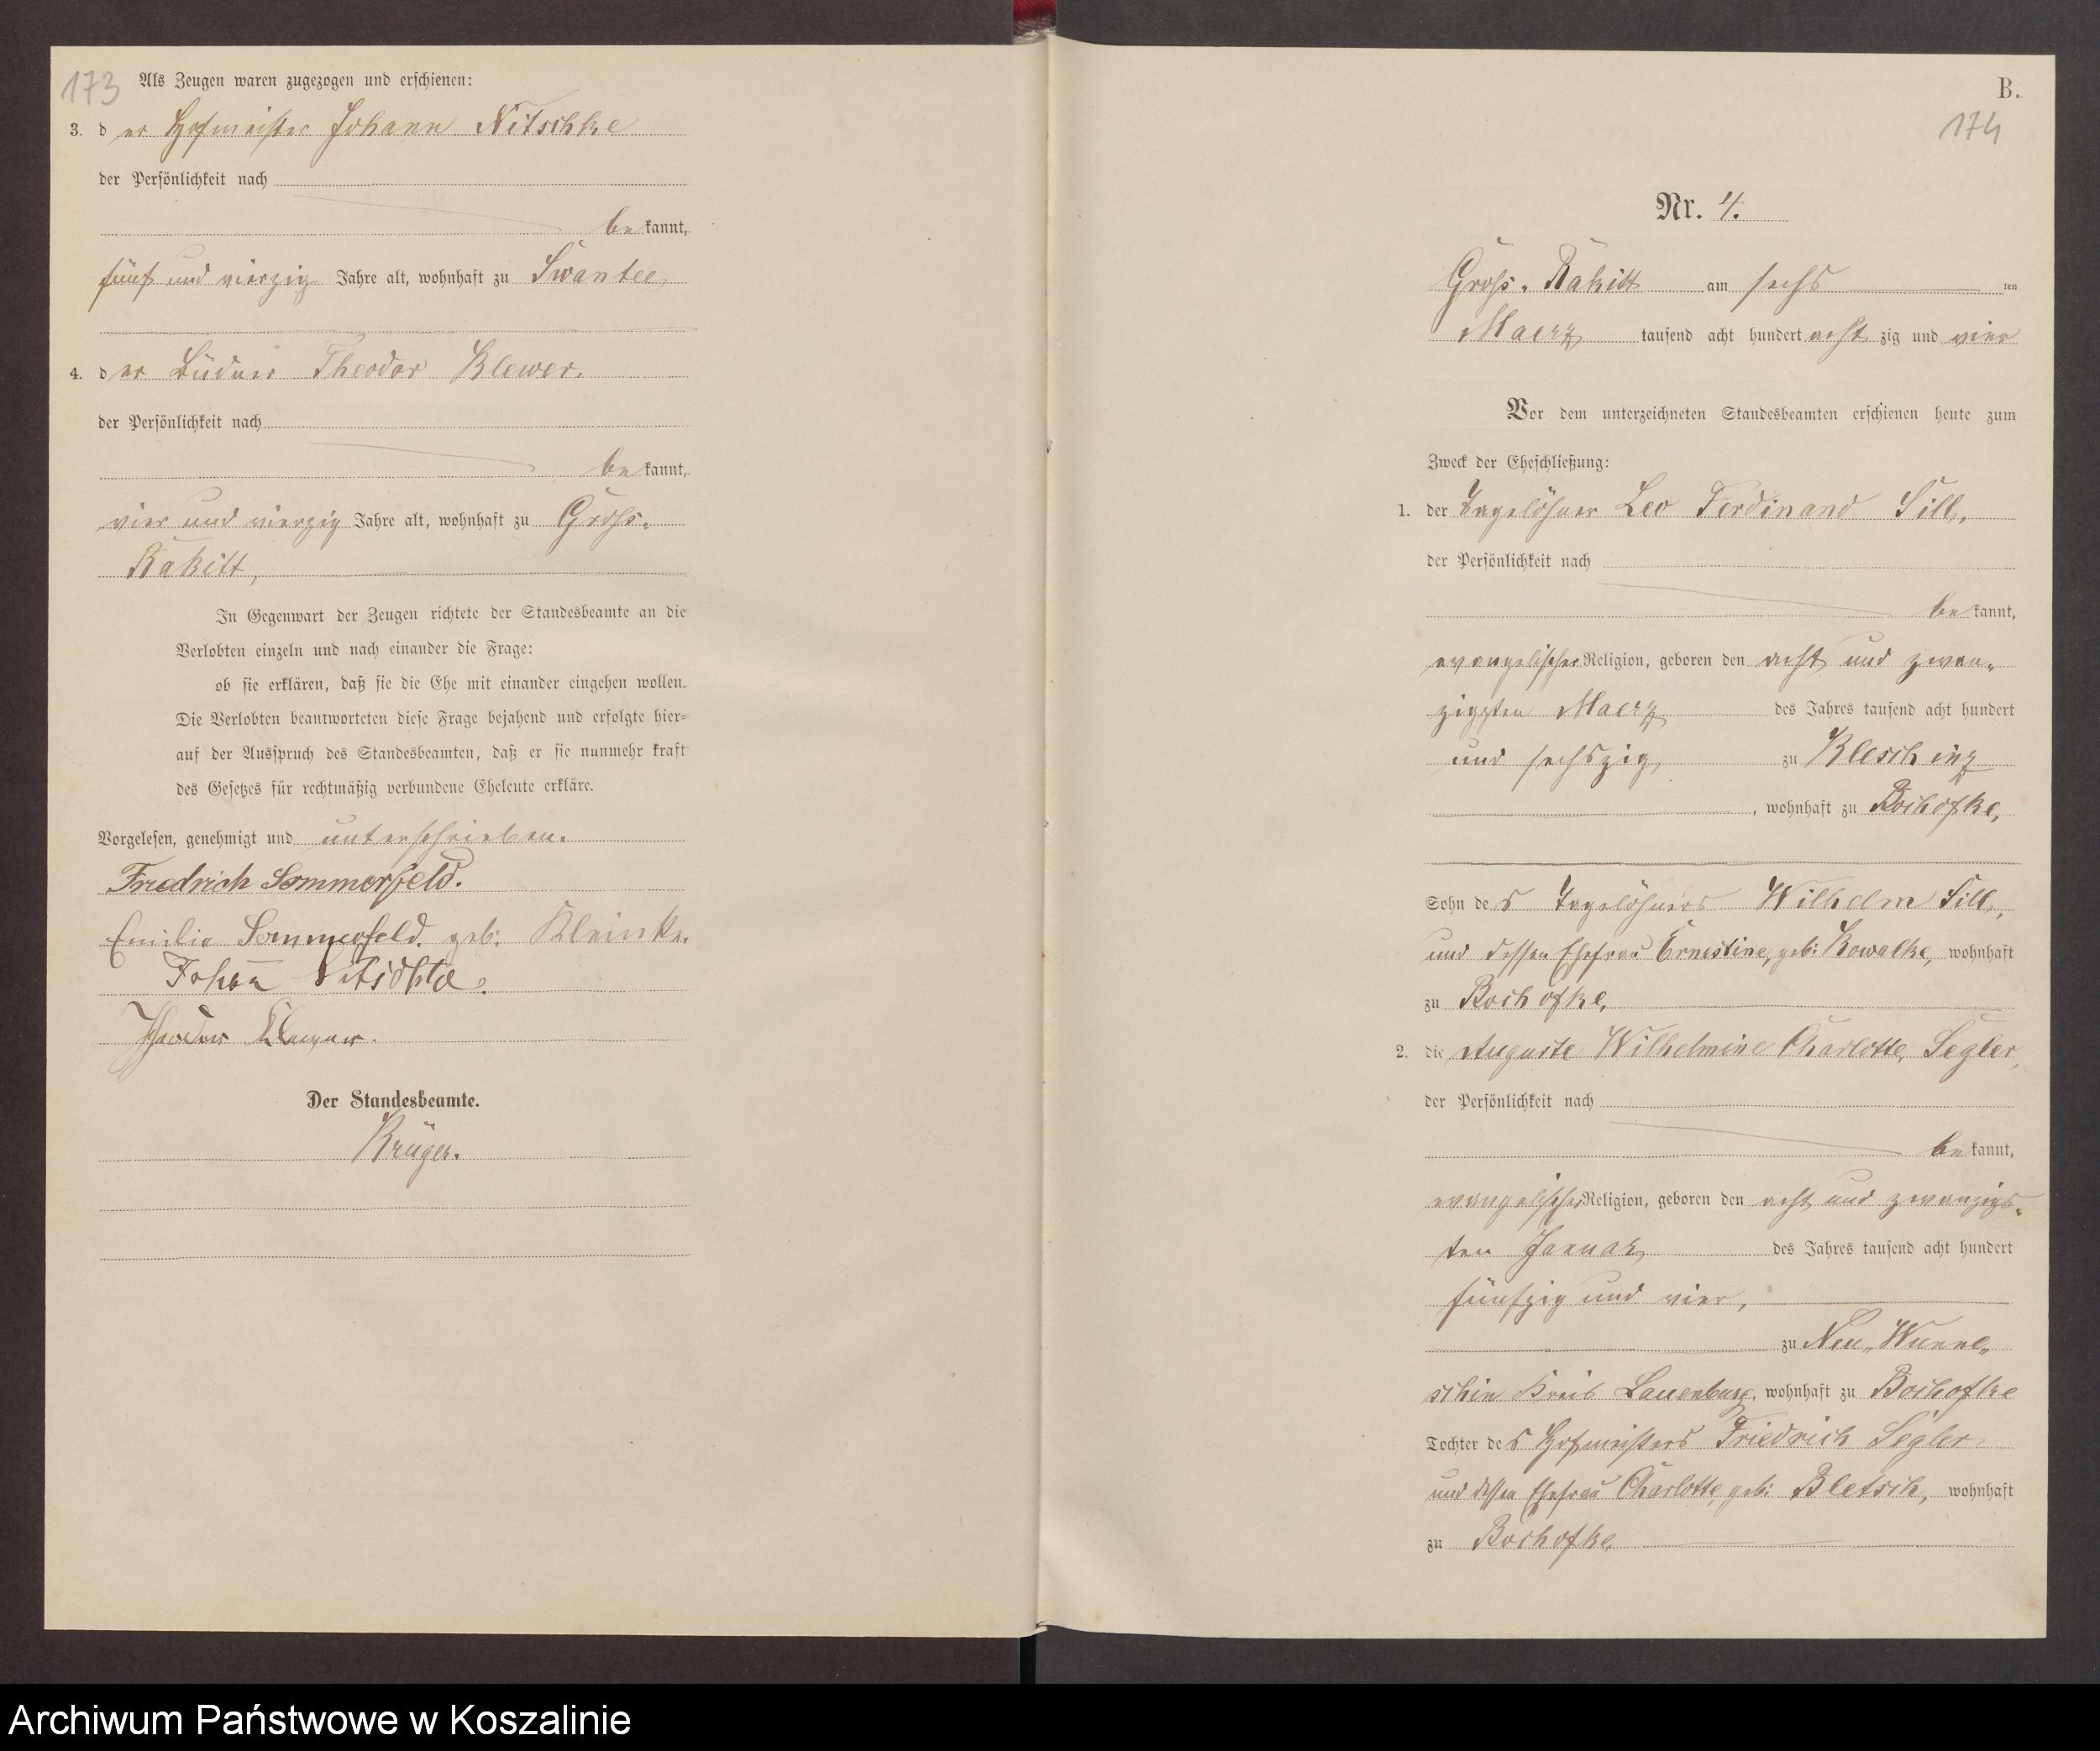 173
Als Zeugen waren zugezogen und erschienen:
3. der Hofmeister Johann Nitschke
der Persönlichkeit nach
bekannt,
fünf und vierzig Jahre alt, wohnhaft zu Swantee,
4. der Büdner Theodor Klewer.
der Persönlichkeit nach
bekannt,
vier und vierzig Jahre alt, wohnhaft zu Gross-
Rakitt,
In Gegenwart der Zeugen richtete der Standesbeamte an die
Verlobten einzeln und nach einander die Frage:
ob sie erklären, daß sie die Ehe mit einander eingehen wollen.
Die Verlobten beantworteten diese Frage bejahend und erfolgte hier-
auf der Ausspruch des Standesbeamten, daß er sie nunmehr kraft
des Gesetzes für rechtmäßig verbundene Eheleute erkläre.
Vorgelesen, genehmigt und unterschrieben.
Friedrich Sommerfeld.
Emilie Sommerfeld. geb: Kleinke.
Johann Nitschke.
Theodor Klewer.
Der Standesbeamte.
Krüger.
B.
174
Nr. 4.
Gross-Rakitt am sechs ten
Maerz tausend acht hundert achtzig und vier
Vor dem unterzeichneten Standesbeamten erschienen heute zum
Zweck der Eheschließung:
1. der Tagelöhner Leo Ferdinand Sill,
der Persönlichkeit nach
bekannt,
evangelischer Religion, geboren den acht und zwan-
zigsten Maerz des Jahres tausend acht hundert
und sechszig, zu Kleschinz
, wohnhaft zu Bochofke,
Sohn des Tagelöhners Wilhelm Sill,
und dessen Ehefrau Ernestine, geb: Kowalke, wohnhaft
zu Bochofke,
2. die Auguste Wilhelmine Charlotte Segler,
der Persönlichkeit nach
bekannt,
evangelischer Religion, geboren den acht und zwanzigs-
ten Januar, des Jahres tausend acht hundert
fünfzig und vier,
zu Neu-Wunne-
schin Kreis Lauenburg, wohnhaft zu Bochofke
Tochter des Hofmeisters Friedrich Segler
und dessen Ehefrau Charlotte, geb: Bletsch, wohnhaft
zu Bochofke,
Archiwum Państwowe w Koszalinie